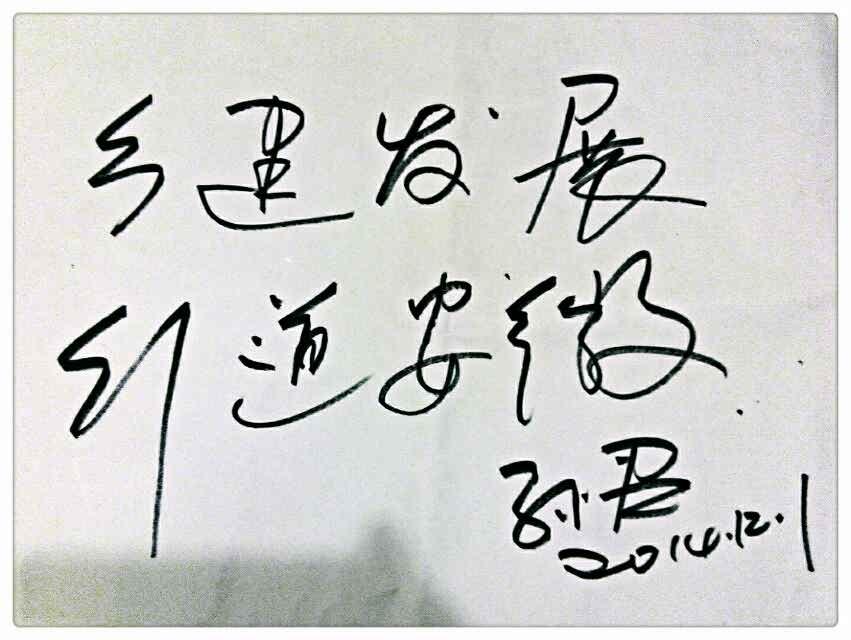 乡建发展
引道安徽.
孙君
2014.12.1